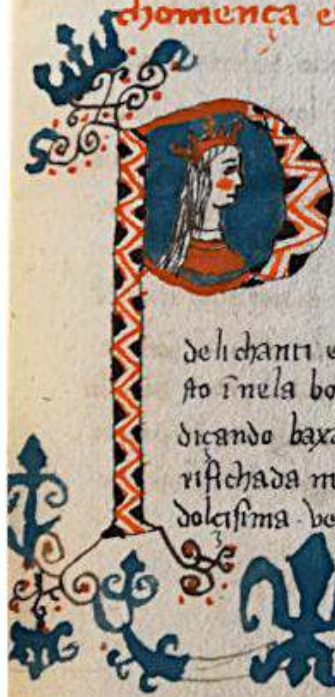 chomença e
P
deli chanti e
sto īnela bo
diçando baxa
rifichada m
dolcisima ve